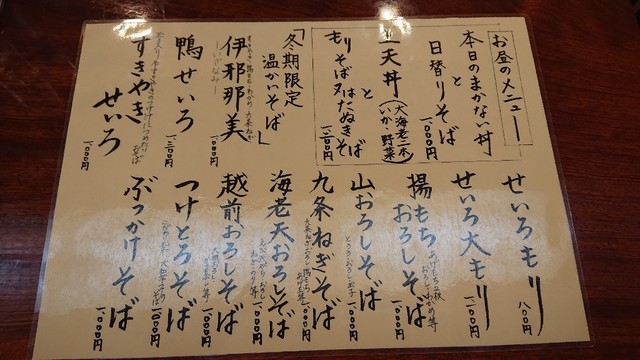 お昼のメニュー
本日のまかない丼
と
日替りそば
一、〇〇〇円
天丼(大海老二本 いか 野菜)
と
もりそば又はたぬきそば
一、二〇〇円
「冬期限定
温かいそば」
伊邪那美
ーいざなみー
一、〇〇〇円
鴨せいろ
一、三〇〇円
すきやき
せいろ
一、一〇〇円
せいろもり
八〇〇円
せいろ大もり
一、一〇〇円
揚もち
おろしそば
一、〇〇〇円
山おろしそば
一、〇〇〇円
九条ねぎそば
一、〇〇〇円
海老天おろしそば
一、〇〇〇円
越前おろしそば
一、〇〇〇円
つけとろそば
一、〇〇〇円
ぶっかけそば
一、〇〇〇円